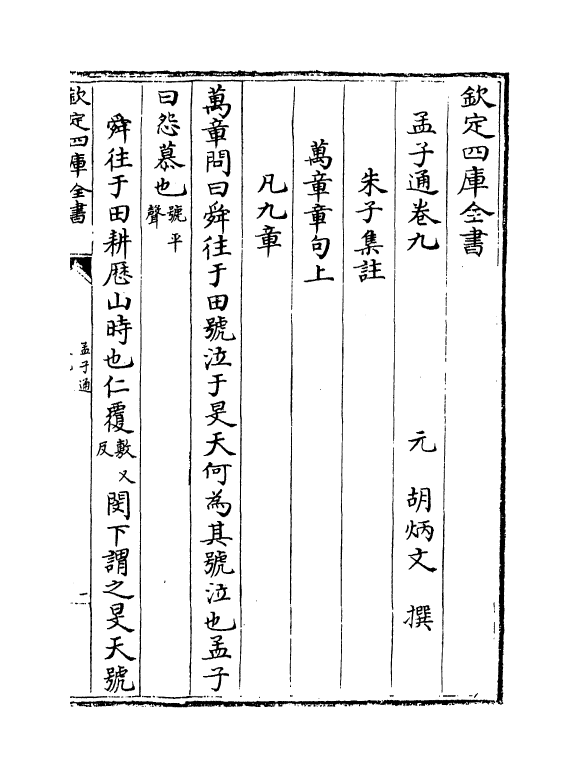 欽定四庫全書
孟子通卷九　元　胡炳文　撰
朱子集註
萬章章句上
凡九章
萬章問曰舜往于田號泣于旻天何為其號泣也孟子
曰怨慕也號平聲
舜往于田耕歷山時也仁覆敷又反閔下謂之旻天號
欽定四庫全書
孟子通